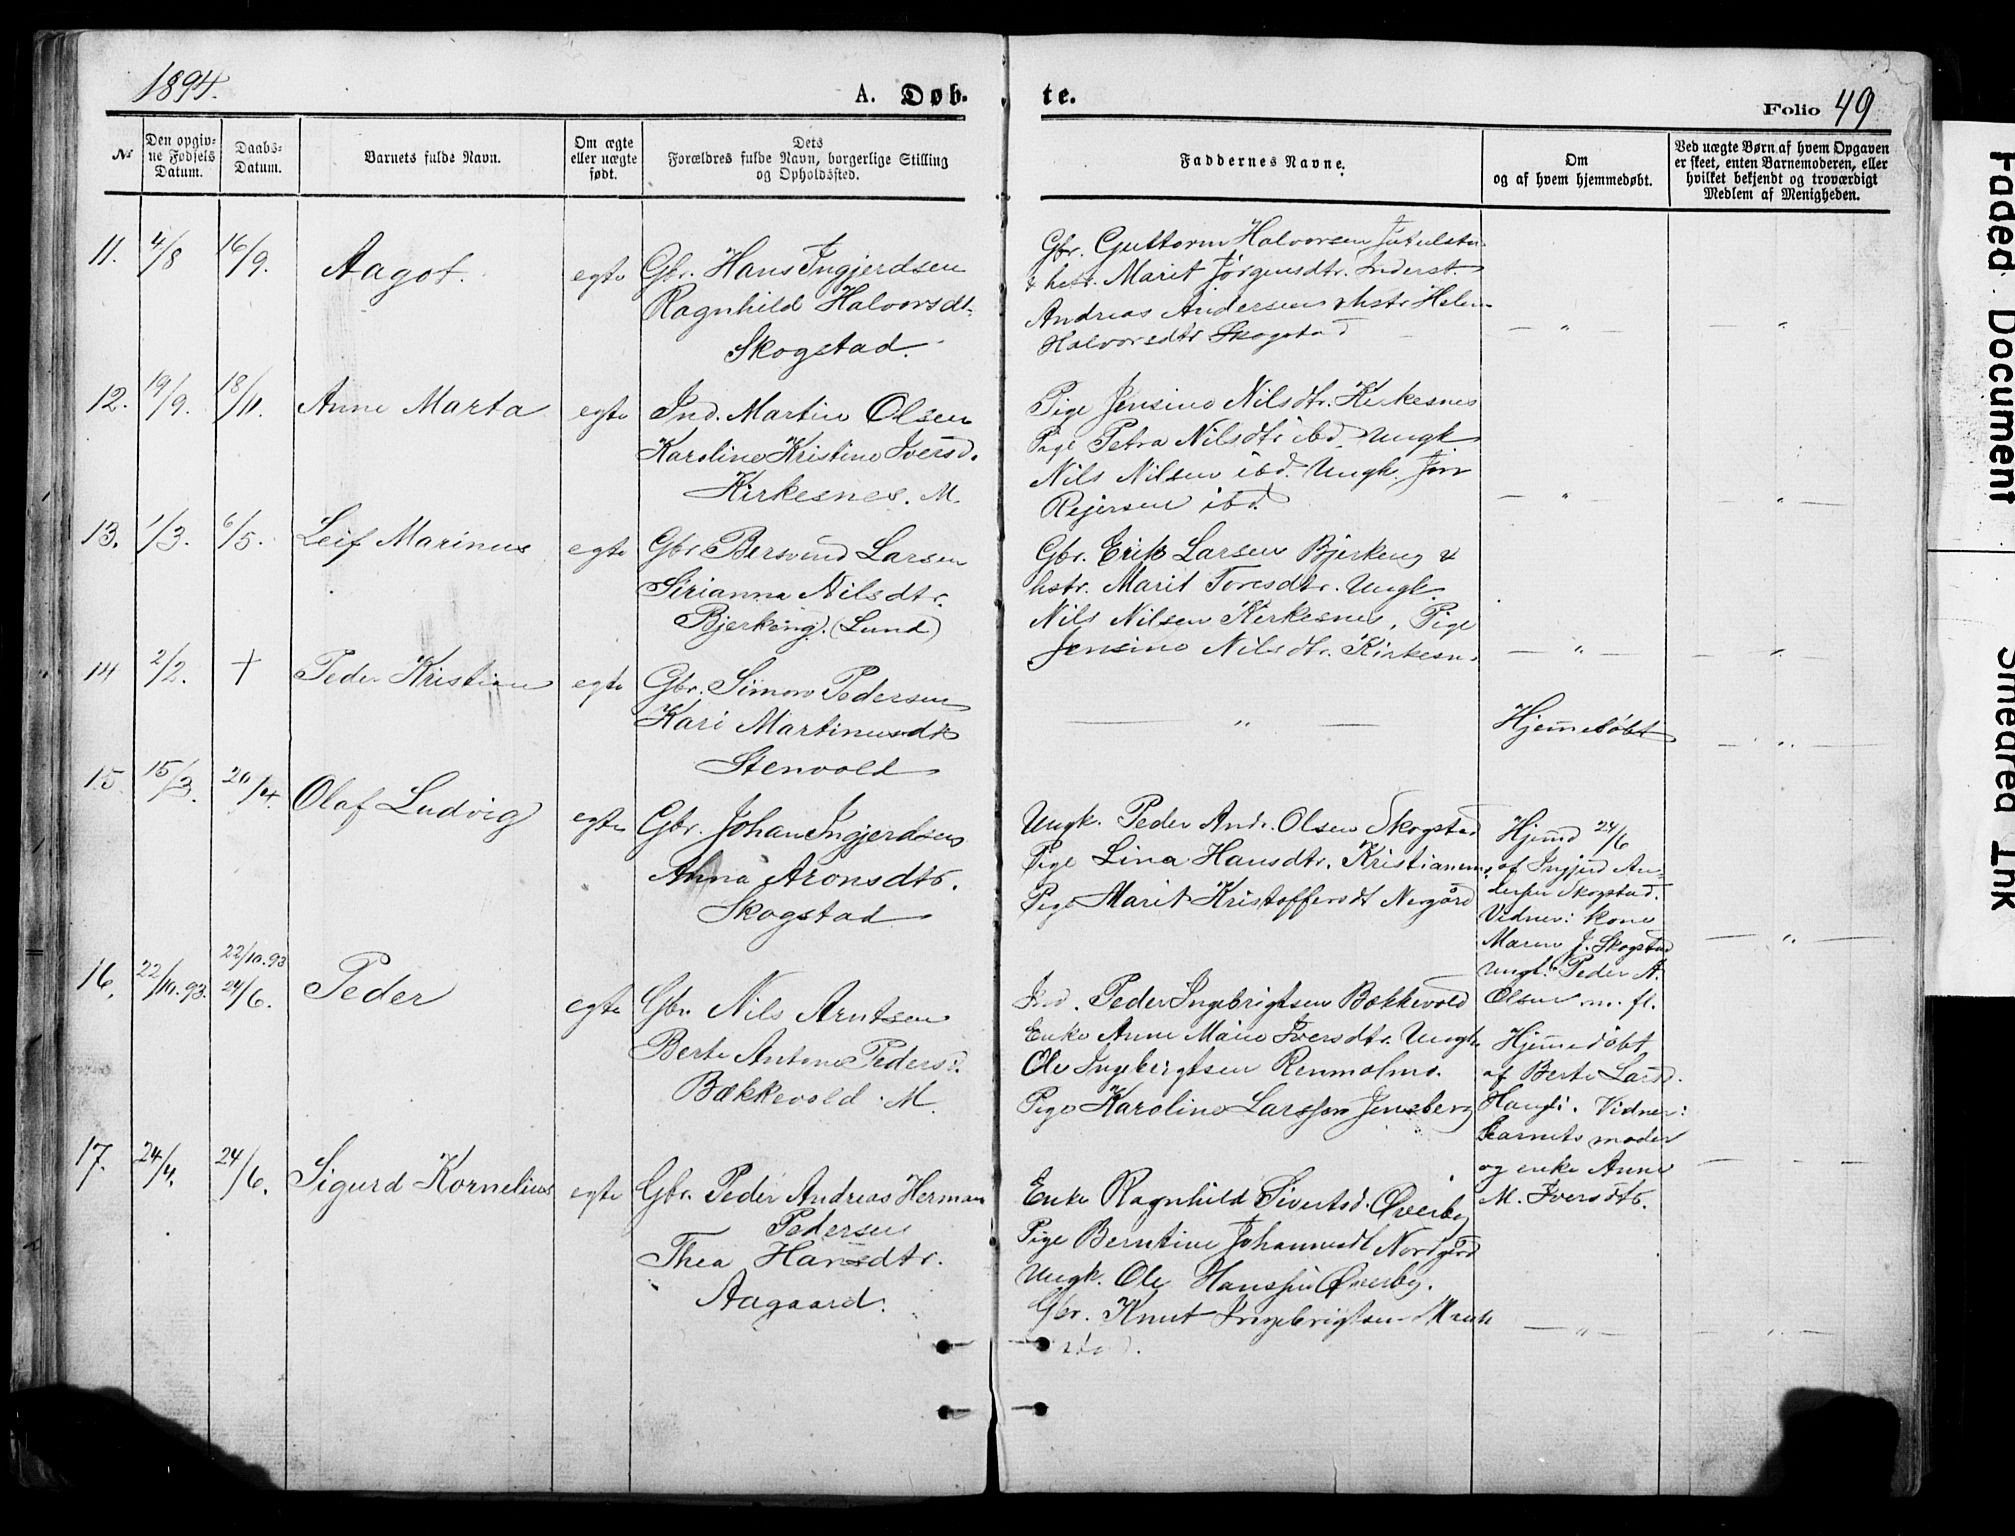 1894.
A. Døb-
te.
Folio 49
No
Den opgiv-
ne Fødsels
Datum.
Daabs-
Datum.
Barnets fulde Navn.
Om ægte
eller uægte
født.
Dets
Forældres fulde Navn, borgerlige Stilling
og Opholdssted.
Faddernes Navne.
Om
og af hvem hjemmedøbt.
Ved uægte Børn af hvem Opgaven
er skeet, enten Barnemoderen, eller
hvilket bekjendt og troværdigt
Medlem af Menigheden.
11. 4/8 16/9. Aagot. egte
Gbr. Hans Ingjerdsen
Ragnhild Halvorsdt.
Skogstad.
Gbr. Guttorm Halvorsen
& hstr. Marit Jørgensdtr. Inderst.
Andreas Andersen & hstr. Helen
Halvorsdtr Skogstad
— " — — " —
12. 19/9. 18/11. Anne Marta egte
Ind. Martin Olsen
Karoline Kristine Iversd.
Kirkesnes. M.
Pige Jensine Nilsdtr. Kirkesnes
Pige Petra Nilsdtr ibd. Ungk.
Nils Nilsen ibd. Ungk. Jon
Rejersen ibd.
— " — — " —
13. 1/3. 6/5. Leif Marinus egte
Gbr. Bersvend Larsen
Sirianna Nilsdtr.
Bjerkeng. (Lund)
Gbr. Erik Larsen Bjerkeng &
hstr. Marit Toresdtr. Ungk.
Nils Nilsen Kirkesnes, Pige
Jensine Nilsdtr. Kirkesn.
— " — — " —
14 2/2. + Peder Kristian egte
Gbr. Simon Pedersen
Kari Martinusdtr
Stenvold
— " —
Hjemmedøbt
— " —
15. 15/3. 20/4. Olaf Ludvig egte
Gbr. Johan Ingjerdsen
Anna Aronsdtr.
Skogstad
Ungk. Peder And. Olsen Skogstad
Pige Lina Hansdtr.
Pige Marit Kristoffersdt Nergård
Hjemd 24/6
af Ingjerd An-
dersen Skogstad.
Vidner: kone
Maren J. Skogstad
Ungk. Peder A.
Olsen m. fl.
— " —
16. 22/10.93. 22/10.93
24/6. Peder egte
Gbr. Nils Arntsen
Berte Antone Pedersd.
Bækkevold. M.
Ind. Peder Ingebrigtsen Bækkevold
Enke Anne Marie Iversdtr. Ungk.
Ole Ingebrigtsen Renmolmo.
Pige Karoline Larssen Jensberg
Hjemmedøbt
af Berte Larsd.
Haugli. Vidner:
barnets moder
og enke Anne
M. Iversdtr.
17. 24/4. 24/6. Sigurd Kornelius egte
Gbr. Peder Andreas Herman
Pedersen
Thea Hansdtr.
Aagaard.
Enke Ragnhild Sivertsd. Øverby
Pige Berntine Johannesdt Nordgård
Ungk. Ole Hanssen Øverby.
Gbr. Knut Ingebrigtsen
— " — — " —
Faded Document
Smeared Ink